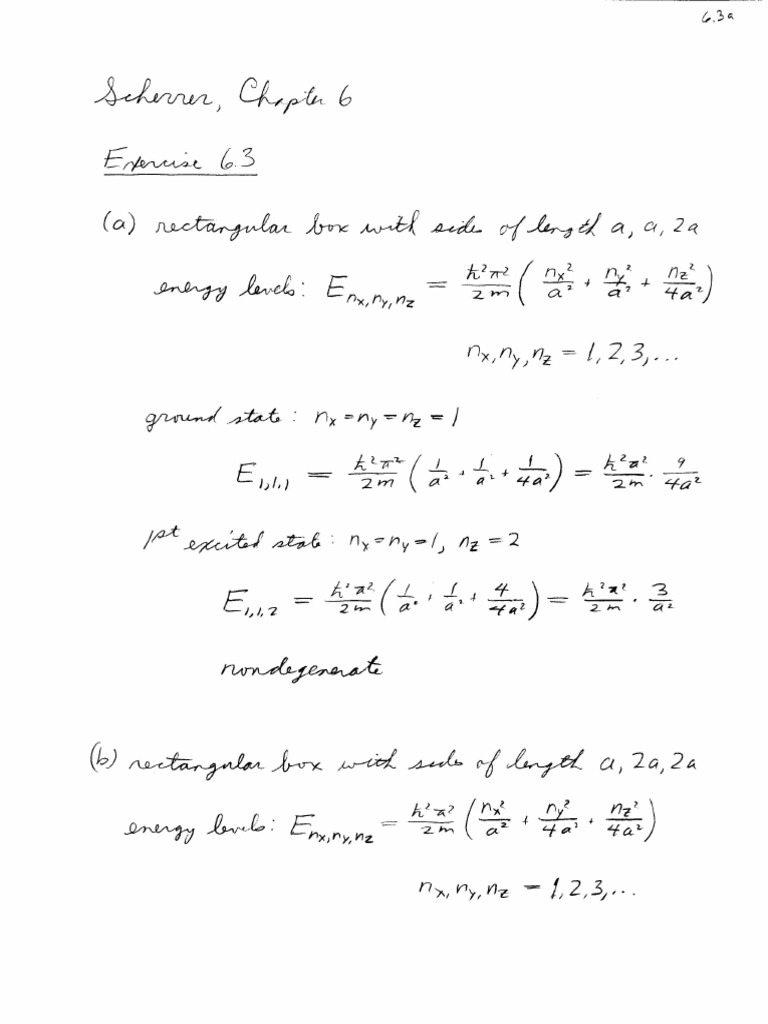 6.3a
Scherrer, Chapter 6
Exercise 6.3
(a) rectangular box with sides of length a, a, 2a
energy levels: E_{nx,ny,nz} = ħ²π²/2m ( nx²/a² + ny²/a² + nz²/4a² )
nx, ny, nz = 1, 2, 3, ...
ground state: nx = ny = nz = 1
E_{1,1,1} = ħ²π²/2m ( 1/a² + 1/a² + 1/4a² ) = ħ²π²/2m · 9/4a²
1st excited state: nx = ny = 1, nz = 2
E_{1,1,2} = ħ²π²/2m ( 1/a² + 1/a² + 4/4a² ) = ħ²π²/2m · 3/a²
nondegenerate
(b) rectangular box with sides of length a, 2a, 2a
energy levels: E_{nx,ny,nz} = ħ²π²/2m ( nx²/a² + ny²/4a² + nz²/4a² )
nx, ny, nz = 1, 2, 3, ...